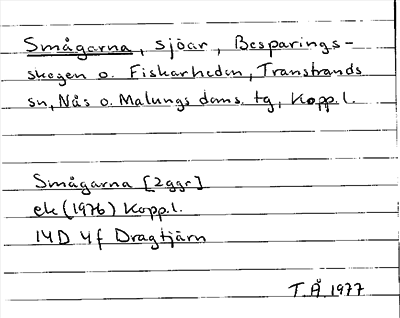 Smågarna, sjöar, Besparings-
skogen o. Fiskarheden, Transtrands
sn, Nås o. Malungs doms. tg, Kopp. l.
Smågarna [2ggr]
ek (1976) Kopp. l.
14D 4f Dragtjärn
T.Å. 1977